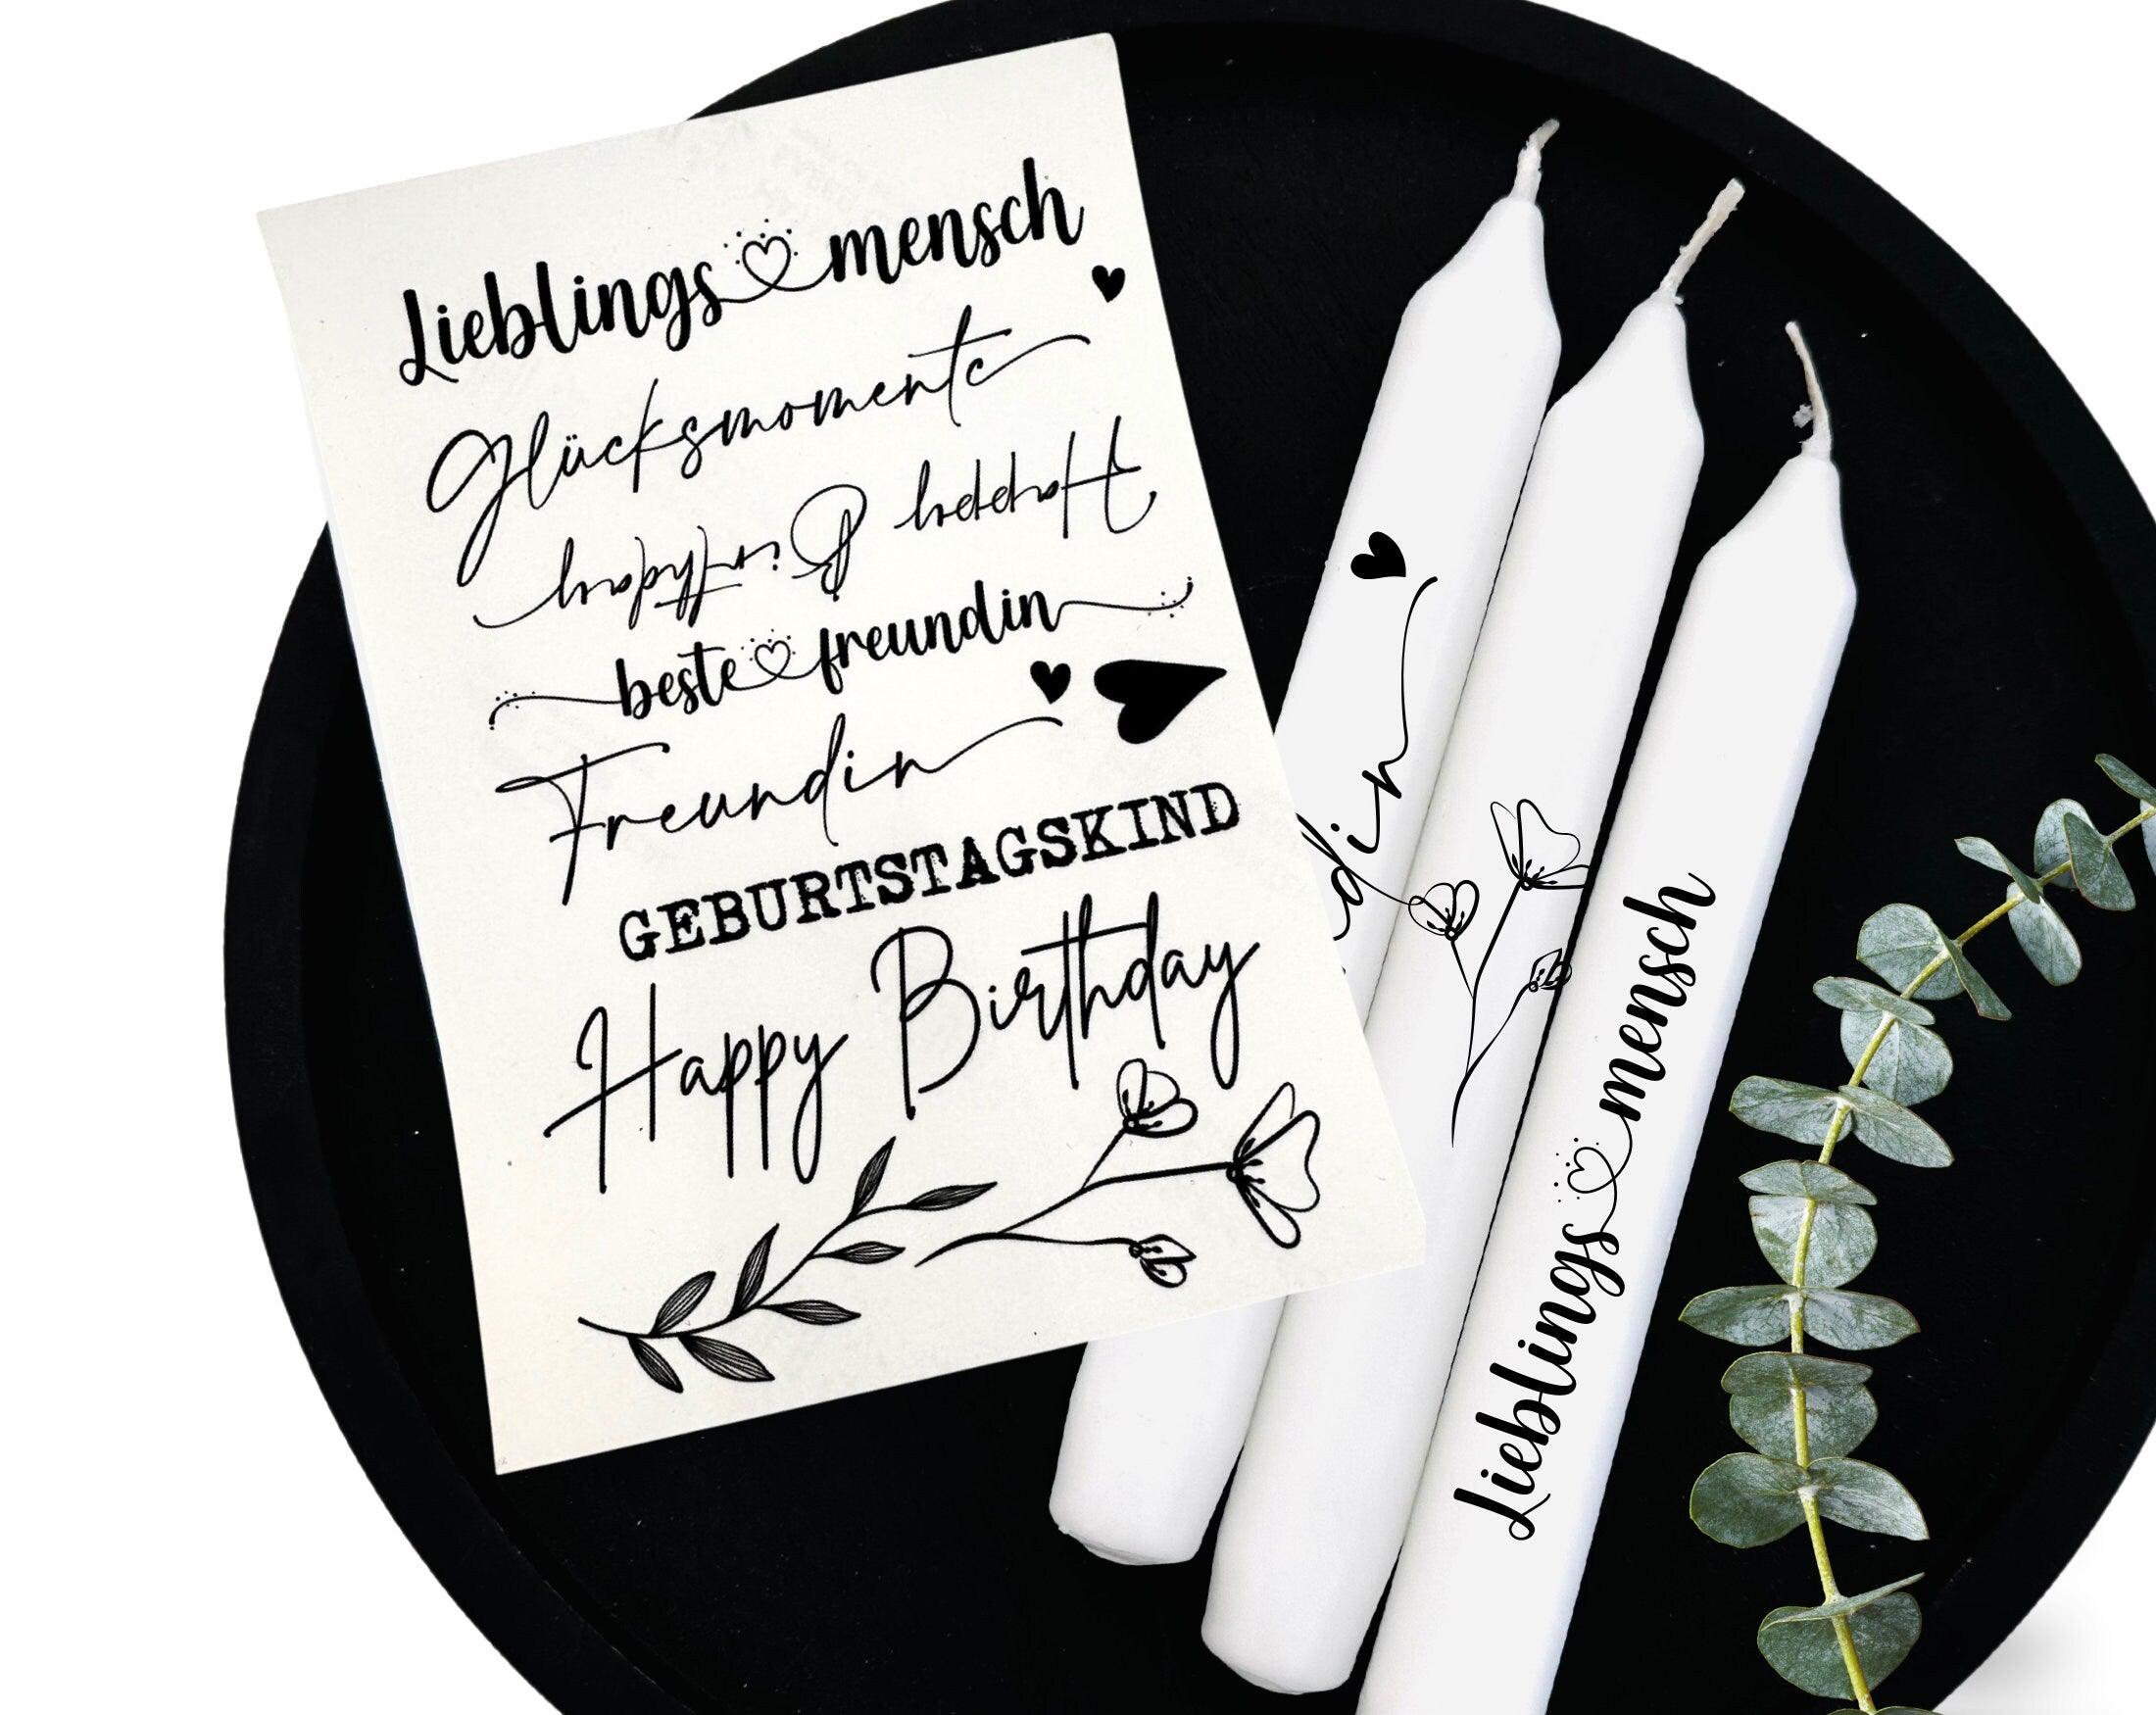 Lieblings mensch
Glücksmomente
Happy Birthday
beste freundin
Freundin
GEBURTSTAGSKIND
Happy Birthday
din
Lieblings mensch